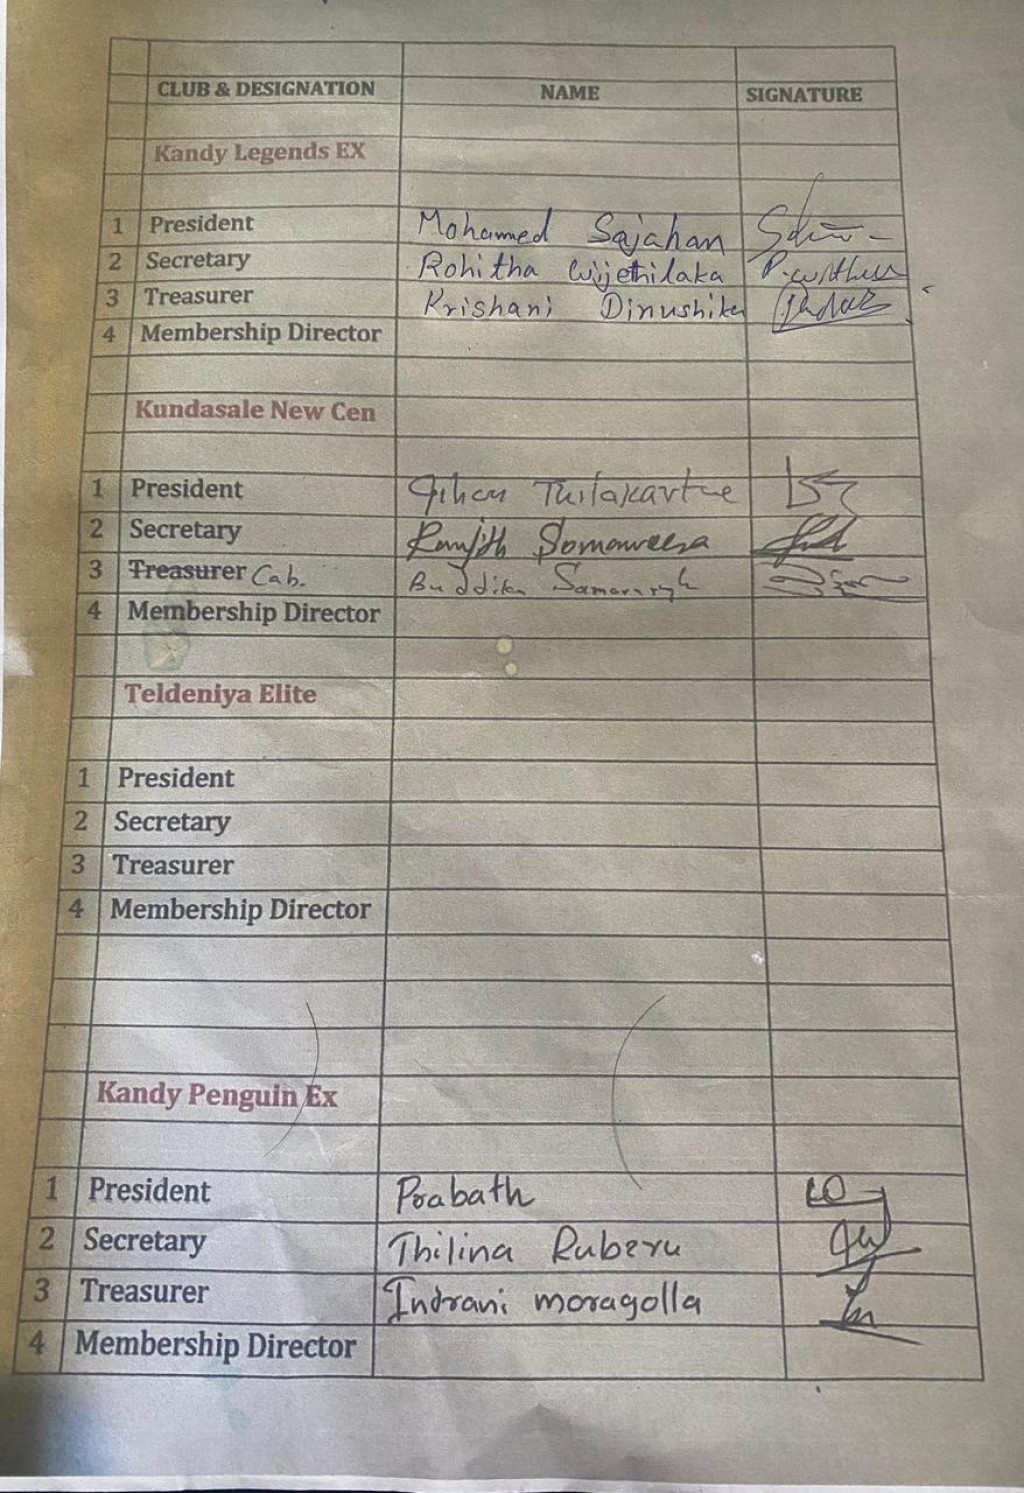 CLUB & DESIGNATION NAME SIGNATURE
Kandy Legends EX
1 President Mohamed Sajahan
2 Secretary Rohitha Wijethilaka
3 Treasurer Krishani Dinushika
4 Membership Director
Kundasale New Cen
1 President Jihan
2 Secretary Ranjith Somaweera
3 Treasurer Cab. Buddika
4 Membership Director
Teldeniya Elite
1 President
2 Secretary
3 Treasurer
4 Membership Director
Kandy Penguin Ex
1 President Prabath
2 Secretary Thilina Ruberu
3 Treasurer Indrani moragolla
4 Membership Director